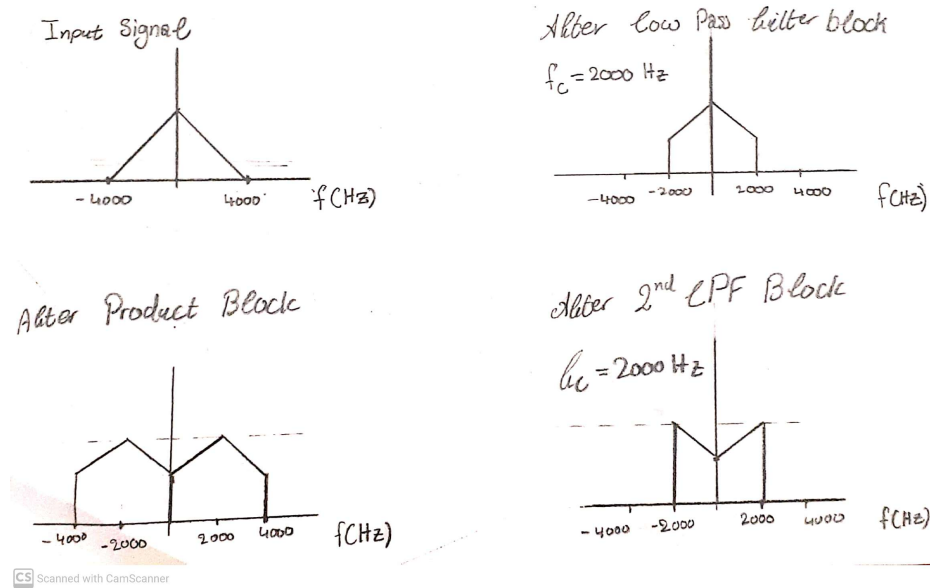 Input Signal
-4000
4000
f(Hz)
After low Pass filter block
fc = 2000 Hz
-4000
-2000
2000
4000
f(Hz)
After Product Block
-4000
-2000
2000
4000
f(Hz)
After 2nd LPF Block
fc = 2000 Hz
-4000
-2000
2000
4000
f(Hz)
CS Scanned with CamScanner